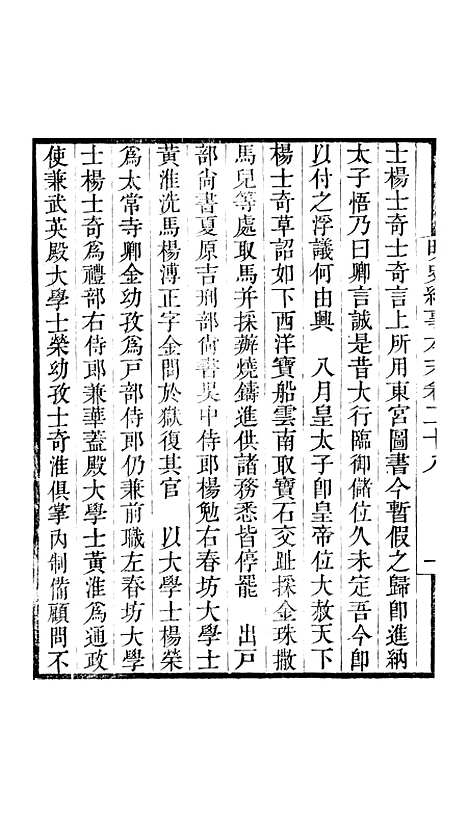 明史紀事本末卷二十八 一
士楊士奇士奇言上所用東宮圖書今暫假之歸即進納
太子悟乃曰卿言誠是昔大行臨御儲位久未定吾今即
以付之浮議何由興 八月皇太子即皇帝位大赦天下
楊士奇草詔如下西洋寶船雲南取寶石交趾採金珠撒
馬兒等處取馬并採辦燒鑄進供諸務悉皆停罷 出戸
部尚書夏原吉刑部尚書吳中侍郎楊勉右春坊大學士
黃淮洗馬楊溥正字金問於獄復其官 以大學士楊榮
爲太常寺卿金幼孜爲戸部侍郎仍兼前職左春坊大學
士楊士奇爲禮部右侍郎兼華蓋殿大學士黃淮爲通政
使兼武英殿大學士榮幼孜士奇淮俱掌內制備顧問不